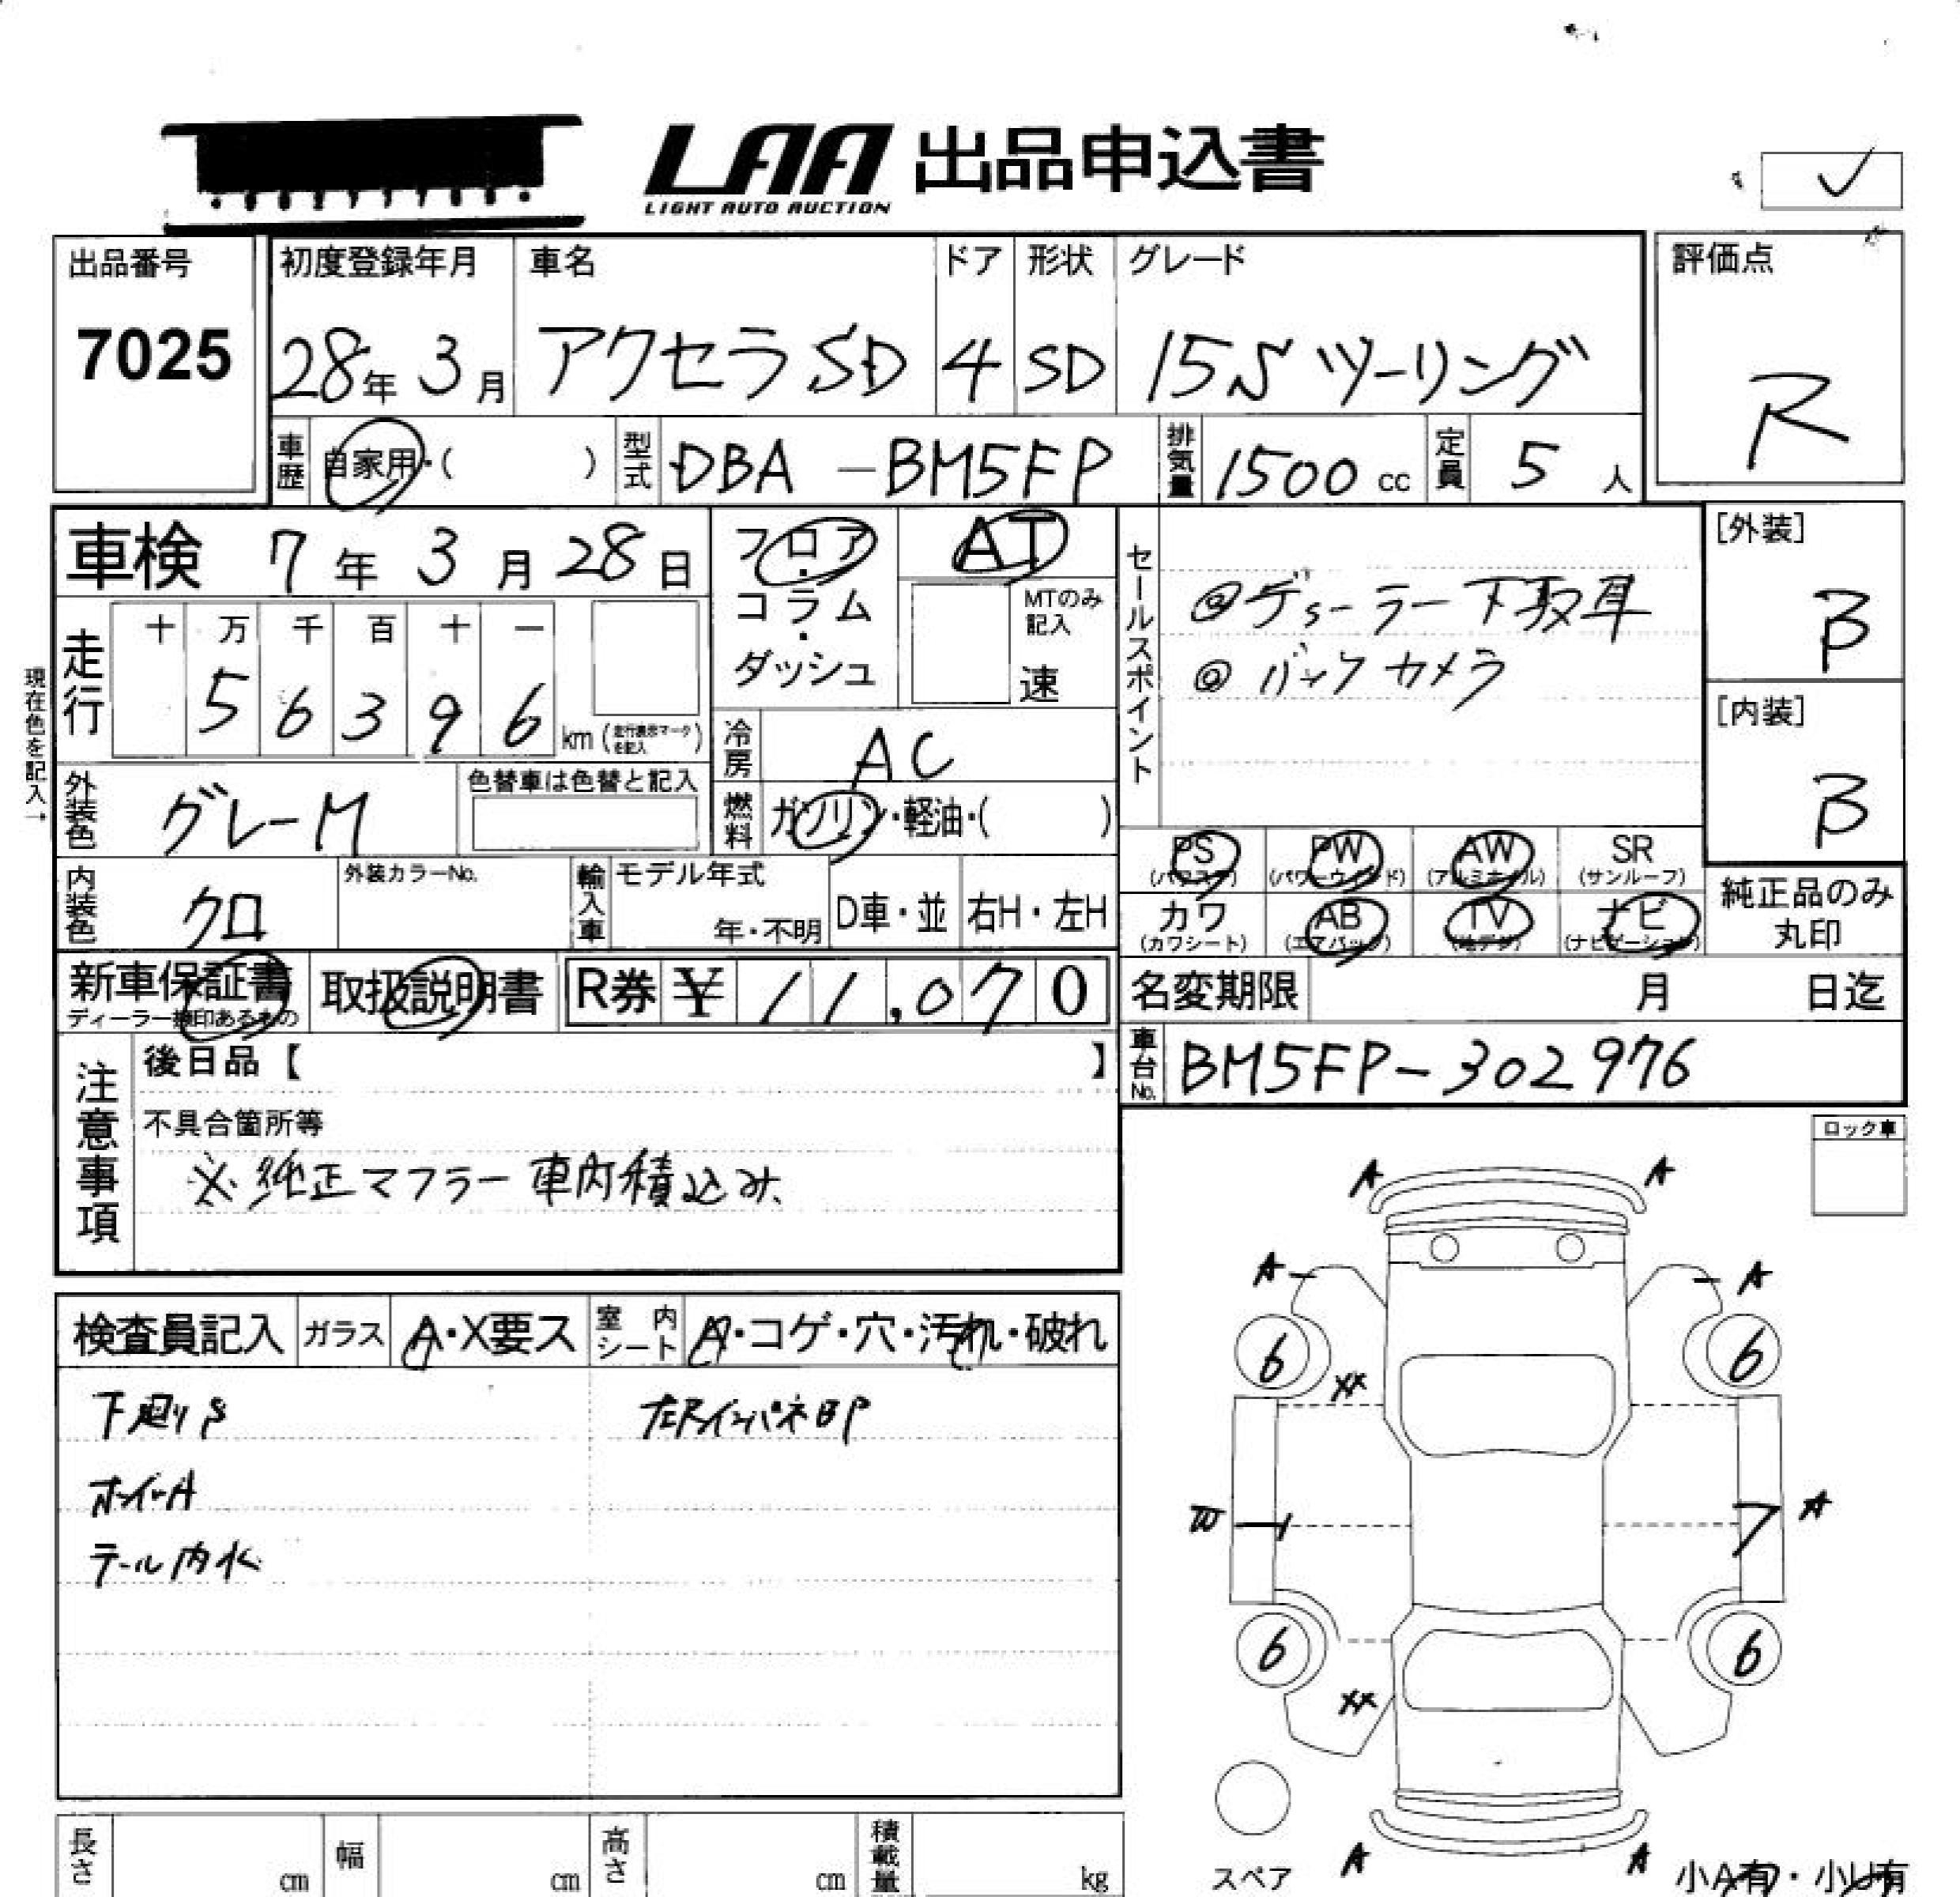 LAA 出品申込書
LIGHT AUTO AUCTION
出品番号 初度登録年月 車名 ドア 形状 グレード 評価点
7025 28年 3月 アクセラSD 4 SD 15S ツーリング R
車歴 自家用・( ) 型式 DBA-BM5FP 排気量 1500 cc 定員 5 人
車検 7年 3月 28日 フロア・コラム・ダッシュ AT
MTのみ記入 速
セールスポイント
◎デューラー下取車
◎バックカメラ
[外装] B
[内装] B
現在色を記入→
走行 十 万 千 百 十 一
5 6 3 9 6 km (走行表示マークを記入)
冷房 AC
外装色 グレーM 色替車は色替と記入
燃料 ガソリン・軽油・( )
PS (パワステ) PW (パワーウインド) AW (アルミホイル) SR (サンルーフ)
カワ (カワシート) AB (エアバッグ) TV (地デジ) ナビ (ナビゲーション)
純正品のみ丸印
内装色 クロ 外装カラーNo. 輸入車 モデル年式 年・不明 D車・並 右H・左H
新車保証書 取扱説明書 R券 ¥ 11,070
ディーラー捺印あるもの
名変期限 月 日迄
車台No. BM5FP-302976
注意事項
後日品【 】
不具合箇所等
※純正マフラー車内積込み
ロック車
検査員記入 ガラス A・X要ス 室内シート A・コゲ・穴・汚れ・破れ
下廻りS
ホイールA
テール内水
A A
A A
6 6
XX
W 1 7 A
6 6
XX
A A
スペア
小A有・小U有
長さ cm 幅 cm 高さ cm 積載量 kg